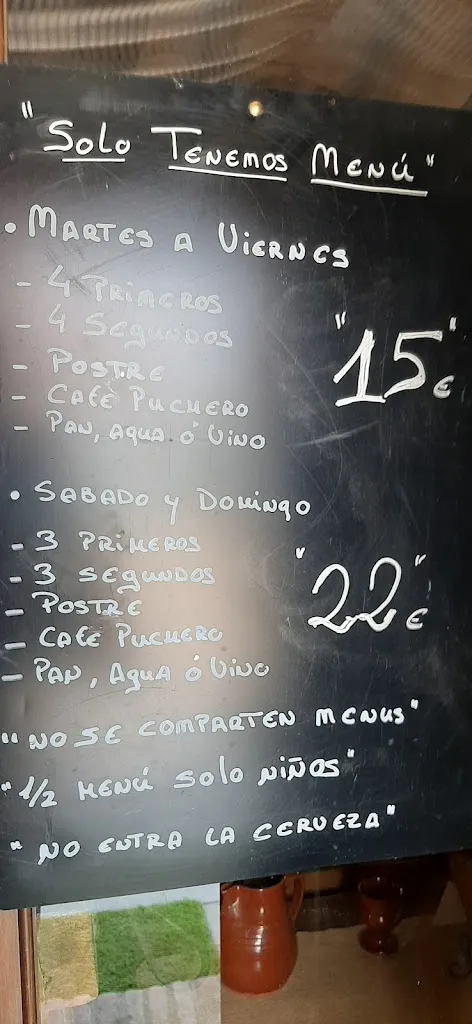 "Solo Tenemos Menú"
• Martes a Viernes
- 4 Primeros
- 4 Segundos
- Postre
- Café Puchero
- Pan, Agua ó Vino
"15"€
• Sabado y Domingo
- 3 Primeros
- 3 Segundos
- Postre
- Café Puchero
- Pan, Agua ó Vino
"22"€
"No se comparten menus"
"1/2 Menú solo niños"
"No entra la cerveza"